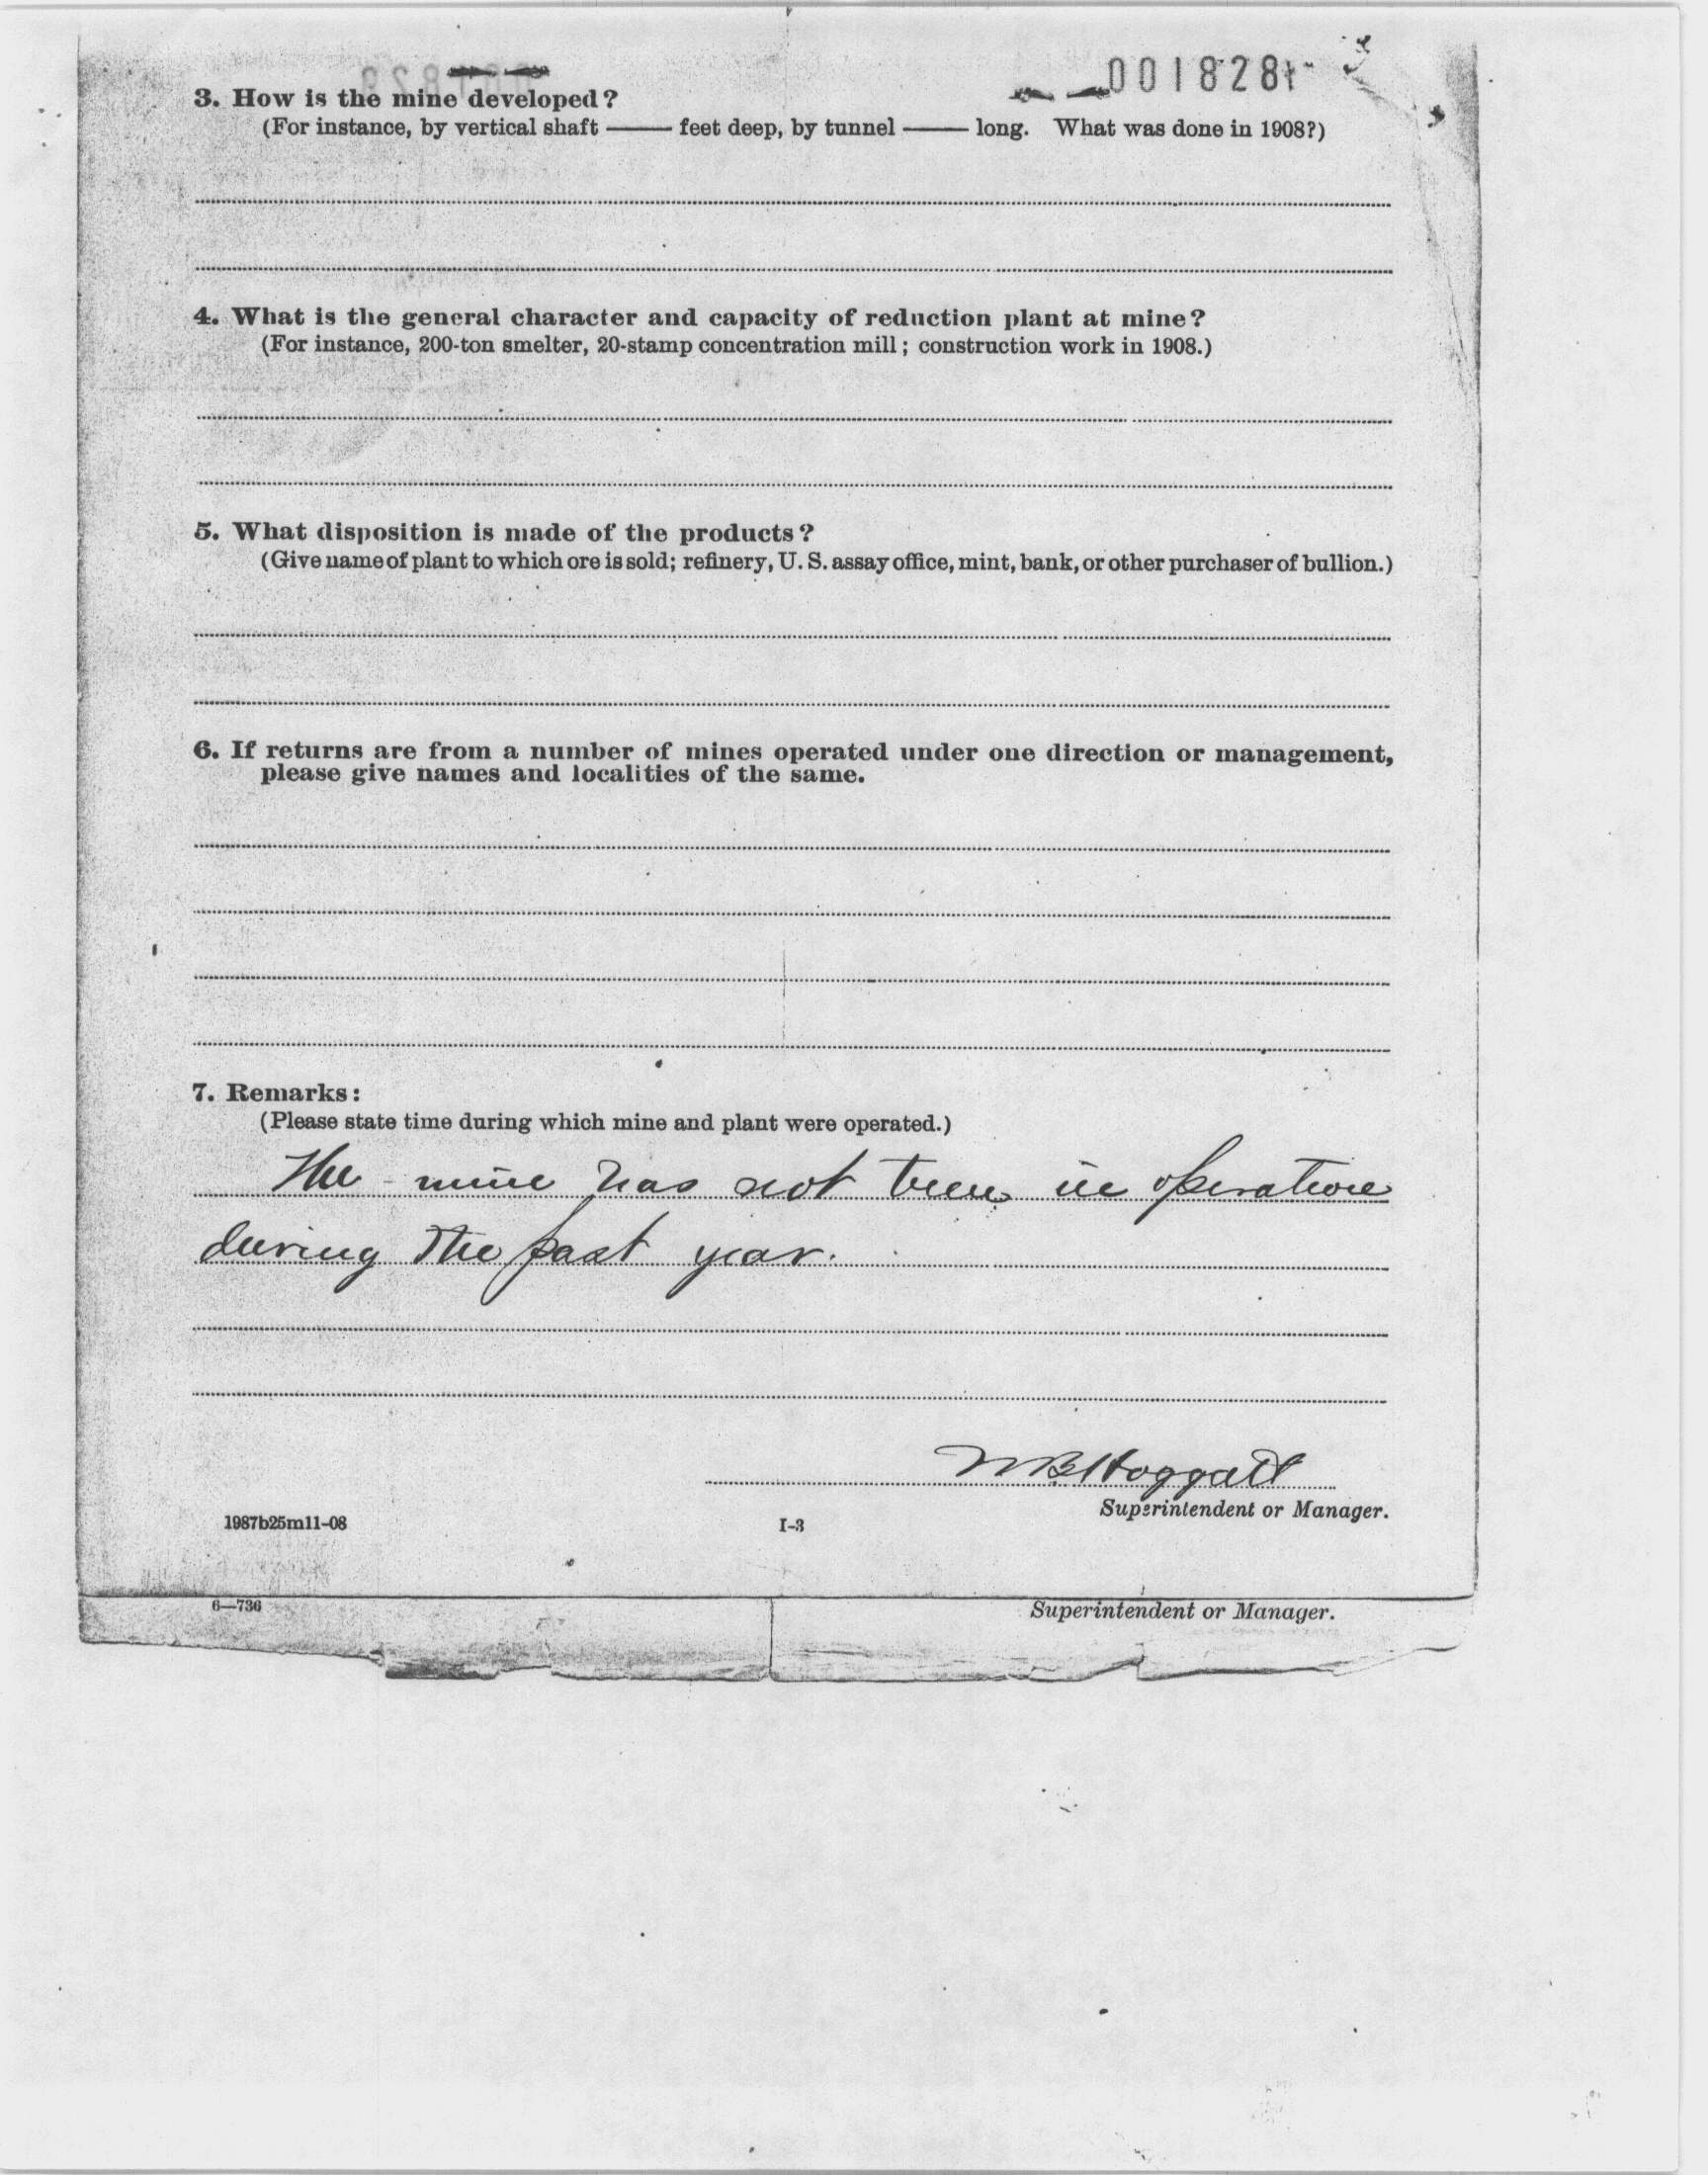 001828
3. How is the mine developed?
(For instance, by vertical shaft —— feet deep, by tunnel —— long. What was done in 1908?)
4. What is the general character and capacity of reduction plant at mine?
(For instance, 200-ton smelter, 20-stamp concentration mill; construction work in 1908.)
5. What disposition is made of the products?
(Give name of plant to which ore is sold; refinery, U. S. assay office, mint, bank, or other purchaser of bullion.)
6. If returns are from a number of mines operated under one direction or management,
please give names and localities of the same.
7. Remarks:
(Please state time during which mine and plant were operated.)
The mine has not been in operation
during the past year.
W B Hoggatt
Superintendent or Manager.
1987b25m11-08 I-3
6—736 Superintendent or Manager.